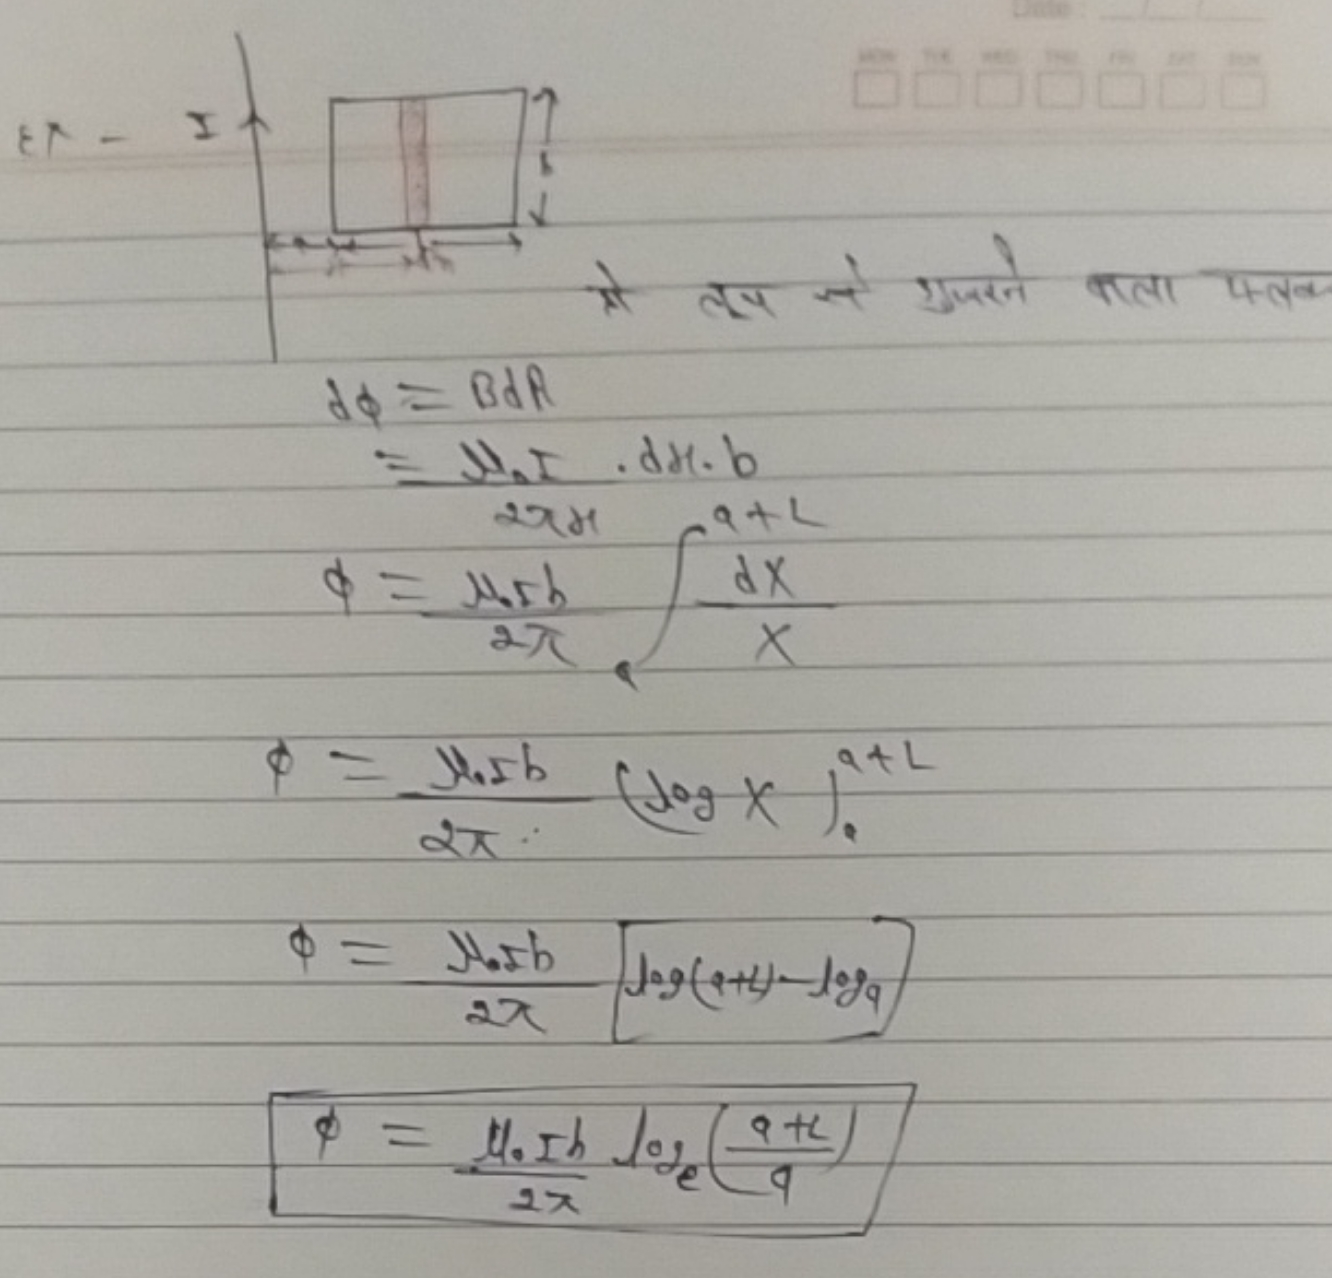 Date :
MON TUE WED THU FRI SAT SUN
Ex - I
b
में लूप से गुजरने वाला फ्लक्स
dφ = BdA
= μ₀I/2πx . dx. b
φ = μ₀Ib/2π ∫ₐ^(a+L) dx/x
φ = μ₀Ib/2π (log x)ₐ^(a+L)
φ = μ₀Ib/2π [log(a+L) - log a]
φ = μ₀Ib/2π logₑ((a+L)/a)